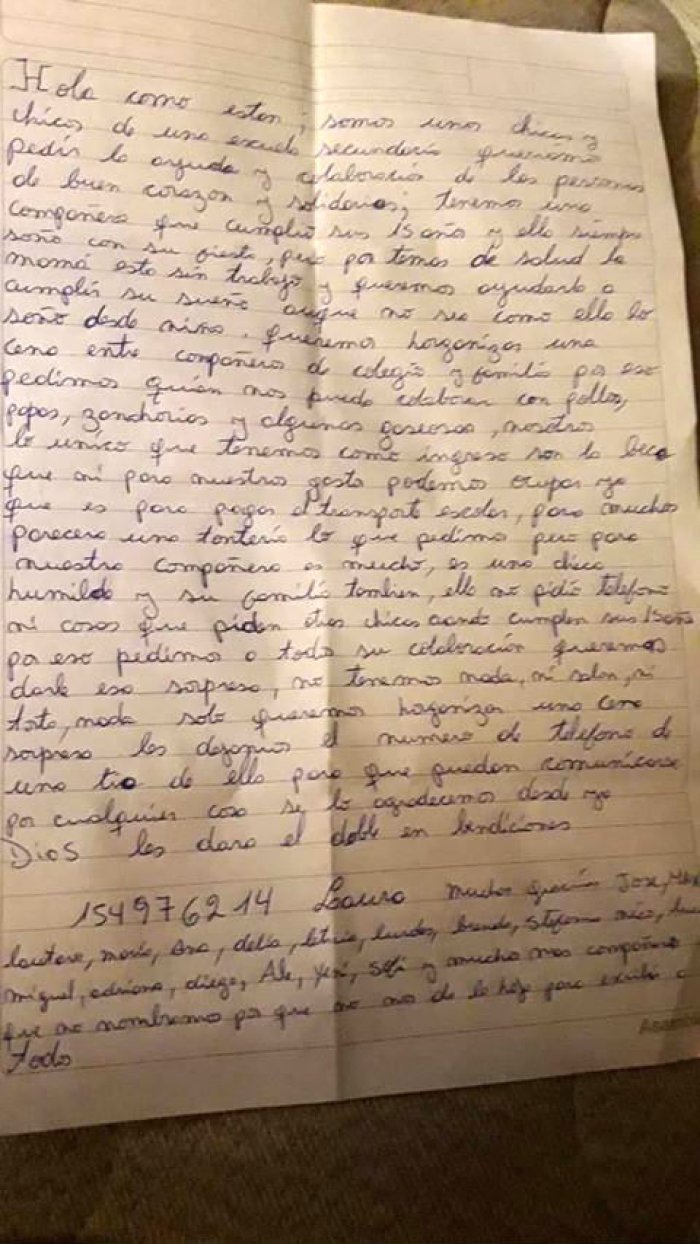 Hola como estan; somos unos chicas y
chicos de una escuela secundaria queriamo
pedir la ayuda y colaboración de las personas
de buen corazon y solidarios; tenemos una
compañera que cumplio sus 15 año y ella siempre
soño con su fiesta, pero por temas de salud la
mamá esta sin trabajo y queremos ayudarla a
cumplir su sueño aunque no sea como ella lo
soño desde niña. queremos horganizar una
cena entre compañeros de colegio y familia por eso
pedimos quién nos puede colaborar con pollos,
papas, zanahorias y algunas gaseosas, nosotros
lo unico que tenemos como ingreso son la beca
que ni para nuestros gasto podemos ocupar ya
que es para pagar el transporte escolar, para muchos
parecera una tonteria lo que pedimo pero para
nuestra compañera es mucho, es una chica
humilde y su familia tambien, ella no pidio telefono
ni cosas que piden otras chicas cuando cumplen sus 15 año
por eso pedimos a todo su colaboración queremos
darle esa sorpresa, no tenemos nada, ni salon, ni
torta, nada solo queremos horganizar una cena
sorpresa les dejamos el numero de telefono de
una tia de ella para que puedan comunicarse
por cualquier cosa se lo agradecemos desde ya
Dios les dara el doble en bendiciones
154976214 Laura muchas gracias Jose,
lautaro, maria, Ana, delia, leticia, lurdes, brenda, stefania, nico,
miguel, adriana, diego, Ale, yesi, y mucho mas compañero
que no nombramo por que no nos da la hoja para escribir a
todo